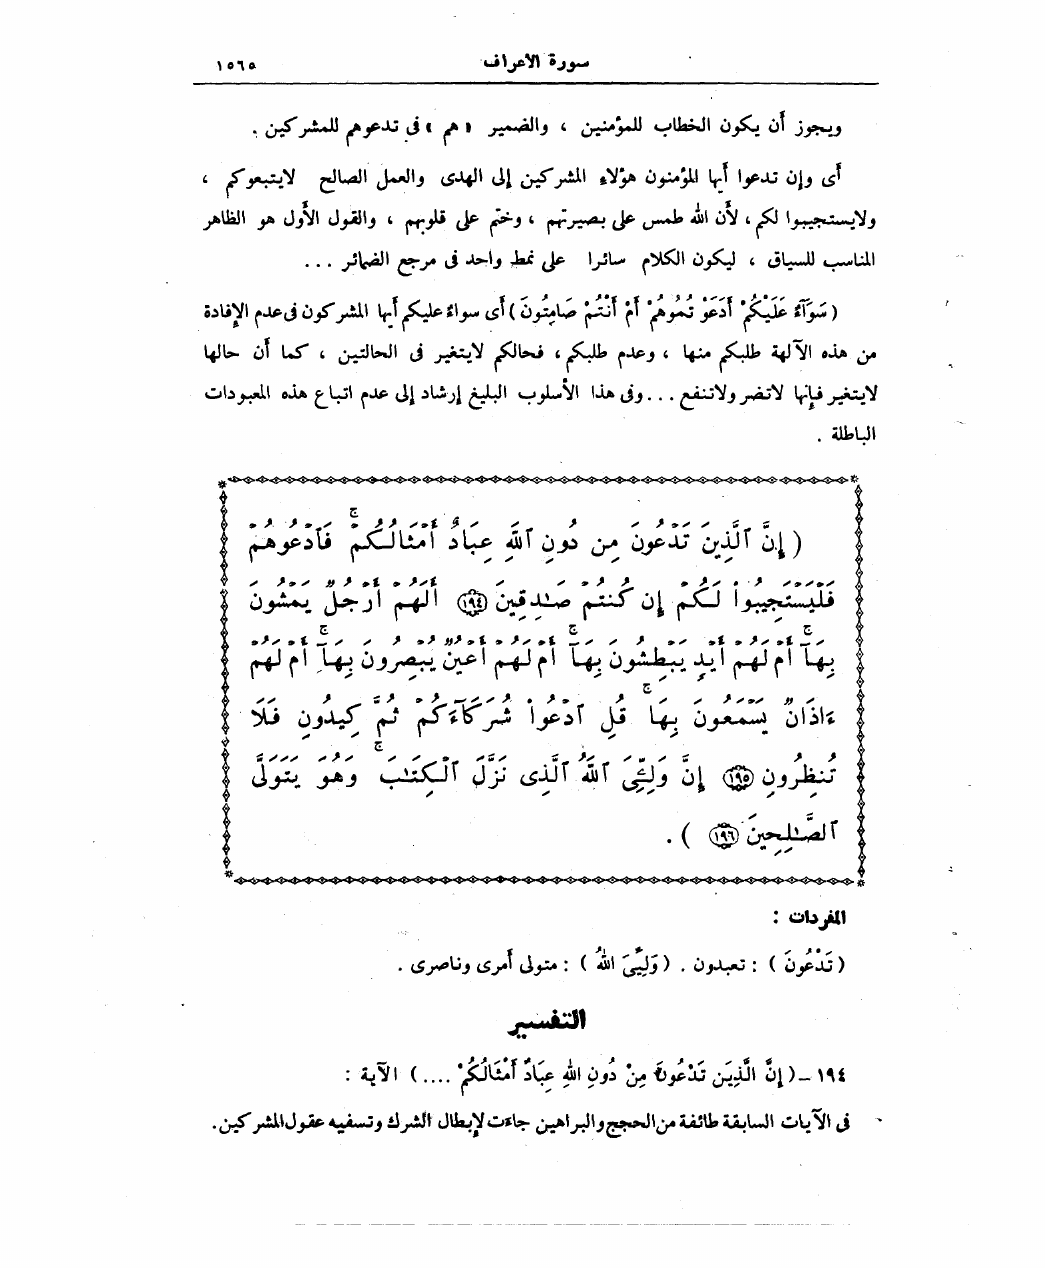 سورة الأعراف ١٥٦٥
ويجوز أن يكون الخطاب للمؤمنين ، والضمير « هم » فى تدعوهم للمشركين .
أى وإن تدعوا أيها المؤمنون هؤلاء المشركين إلى الهدى والعمل الصالح لايتبعوكم ،
ولايستجيبوا لكم ، لأن الله طمس على بصيرتهم ، وختم على قلوبهم ، والقول الأول هو الظاهر
المناسب للسياق ، ليكون الكلام سائرا على نمط واحد فى مرجع الضمائر ...
( سَوَآءٌ عَلَيْكُمْ أَدَعَوْتُمُوهُمْ أَمْ أَنْتُمْ صَامِتُونَ ) أى سواء عليكم أيها المشركون فى عدم الإفادة
من هذه الآلهة طلبكم منها ، وعدم طلبكم ، فحالكم لايتغير فى الحالتين ، كما أن حالها
لايتغير فإنها لاتضر ولاتنفع ... وفى هذا الأسلوب البليغ إرشاد إلى عدم اتباع هذه المعبودات
الباطلة .
( إِنَّ ٱلَّذِينَ تَدْعُونَ مِن دُونِ ٱللَّهِ عِبَادٌ أَمْثَالُكُمْ ۚ فَٱدْعُوهُمْ
فَلْيَسْتَجِيبُوا۟ لَكُمْ إِن كُنتُمْ صَـٰدِقِينَ ﴿١٩٤﴾ أَلَهُمْ أَرْجُلٌ يَمْشُونَ
بِهَآ ۚ أَمْ لَهُمْ أَيْدٍ يَبْطِشُونَ بِهَآ ۚ أَمْ لَهُمْ أَعْيُنٌ يُبْصِرُونَ بِهَآ ۚ أَمْ لَهُمْ
ءَاذَانٌ يَسْمَعُونَ بِهَا ۗ قُلِ ٱدْعُوا۟ شُرَكَآءَكُمْ ثُمَّ كِيدُونِ فَلَا
تُنظِرُونِ ﴿١٩٥﴾ إِنَّ وَلِـِّۧىَ ٱللَّهُ ٱلَّذِى نَزَّلَ ٱلْكِتَـٰبَ ۖ وَهُوَ يَتَوَلَّى
ٱلصَّـٰلِحِينَ ﴿١٩٦﴾ ) .
المفردات :
( تَدْعُونَ ) : تعبدون . ( وَلِيِّىَ اللهُ ) : متولى أمرى وناصرى .
التفسير
١٩٤ - ( إِنَّ الَّذِينَ تَدْعُونَ مِنْ دُونِ اللهِ عِبَادٌ أَمْثَالُكُمْ .... ) الآية :
فى الآيات السابقة طائفة من الحجج والبراهين جاءت لإبطال الشرك وتسفيه عقول المشركين .